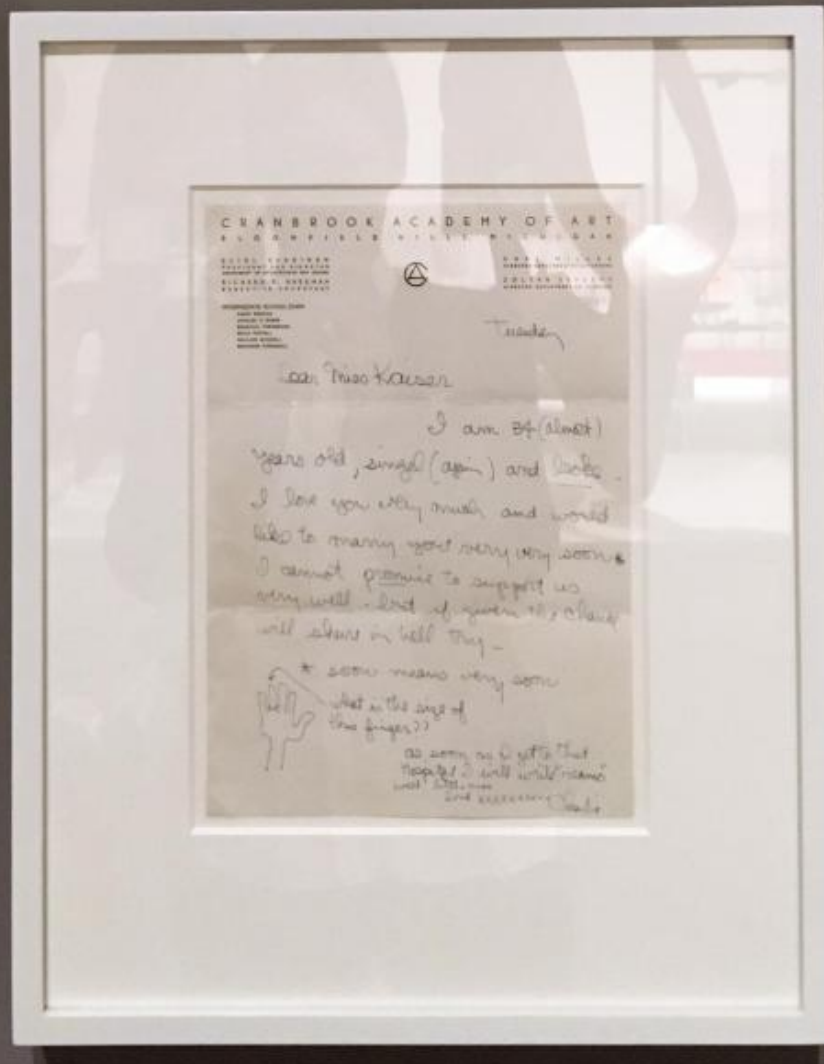 CRANBROOK ACADEMY OF ART
BLOOMFIELD HILLS MICHIGAN
ELIEL SAARINEN
CARL MILLES
RICHARD P. RASEMAN
EXECUTIVE SECRETARY
ZOLTAN SEPESHY
Tuesday
Dear Miss Kaiser
I am 34 (almost)
years old, singel (again) and broke.
I love you very much and would
like to marry you very very soon*
I cannot promise to support us
very well. but if given the chance
will shure in hell try_
* soon means very soon
what is the size of
this finger??
as soon as I get to that
hospital I will write reams
well little ones
love xxxxxxxxxx Charlie